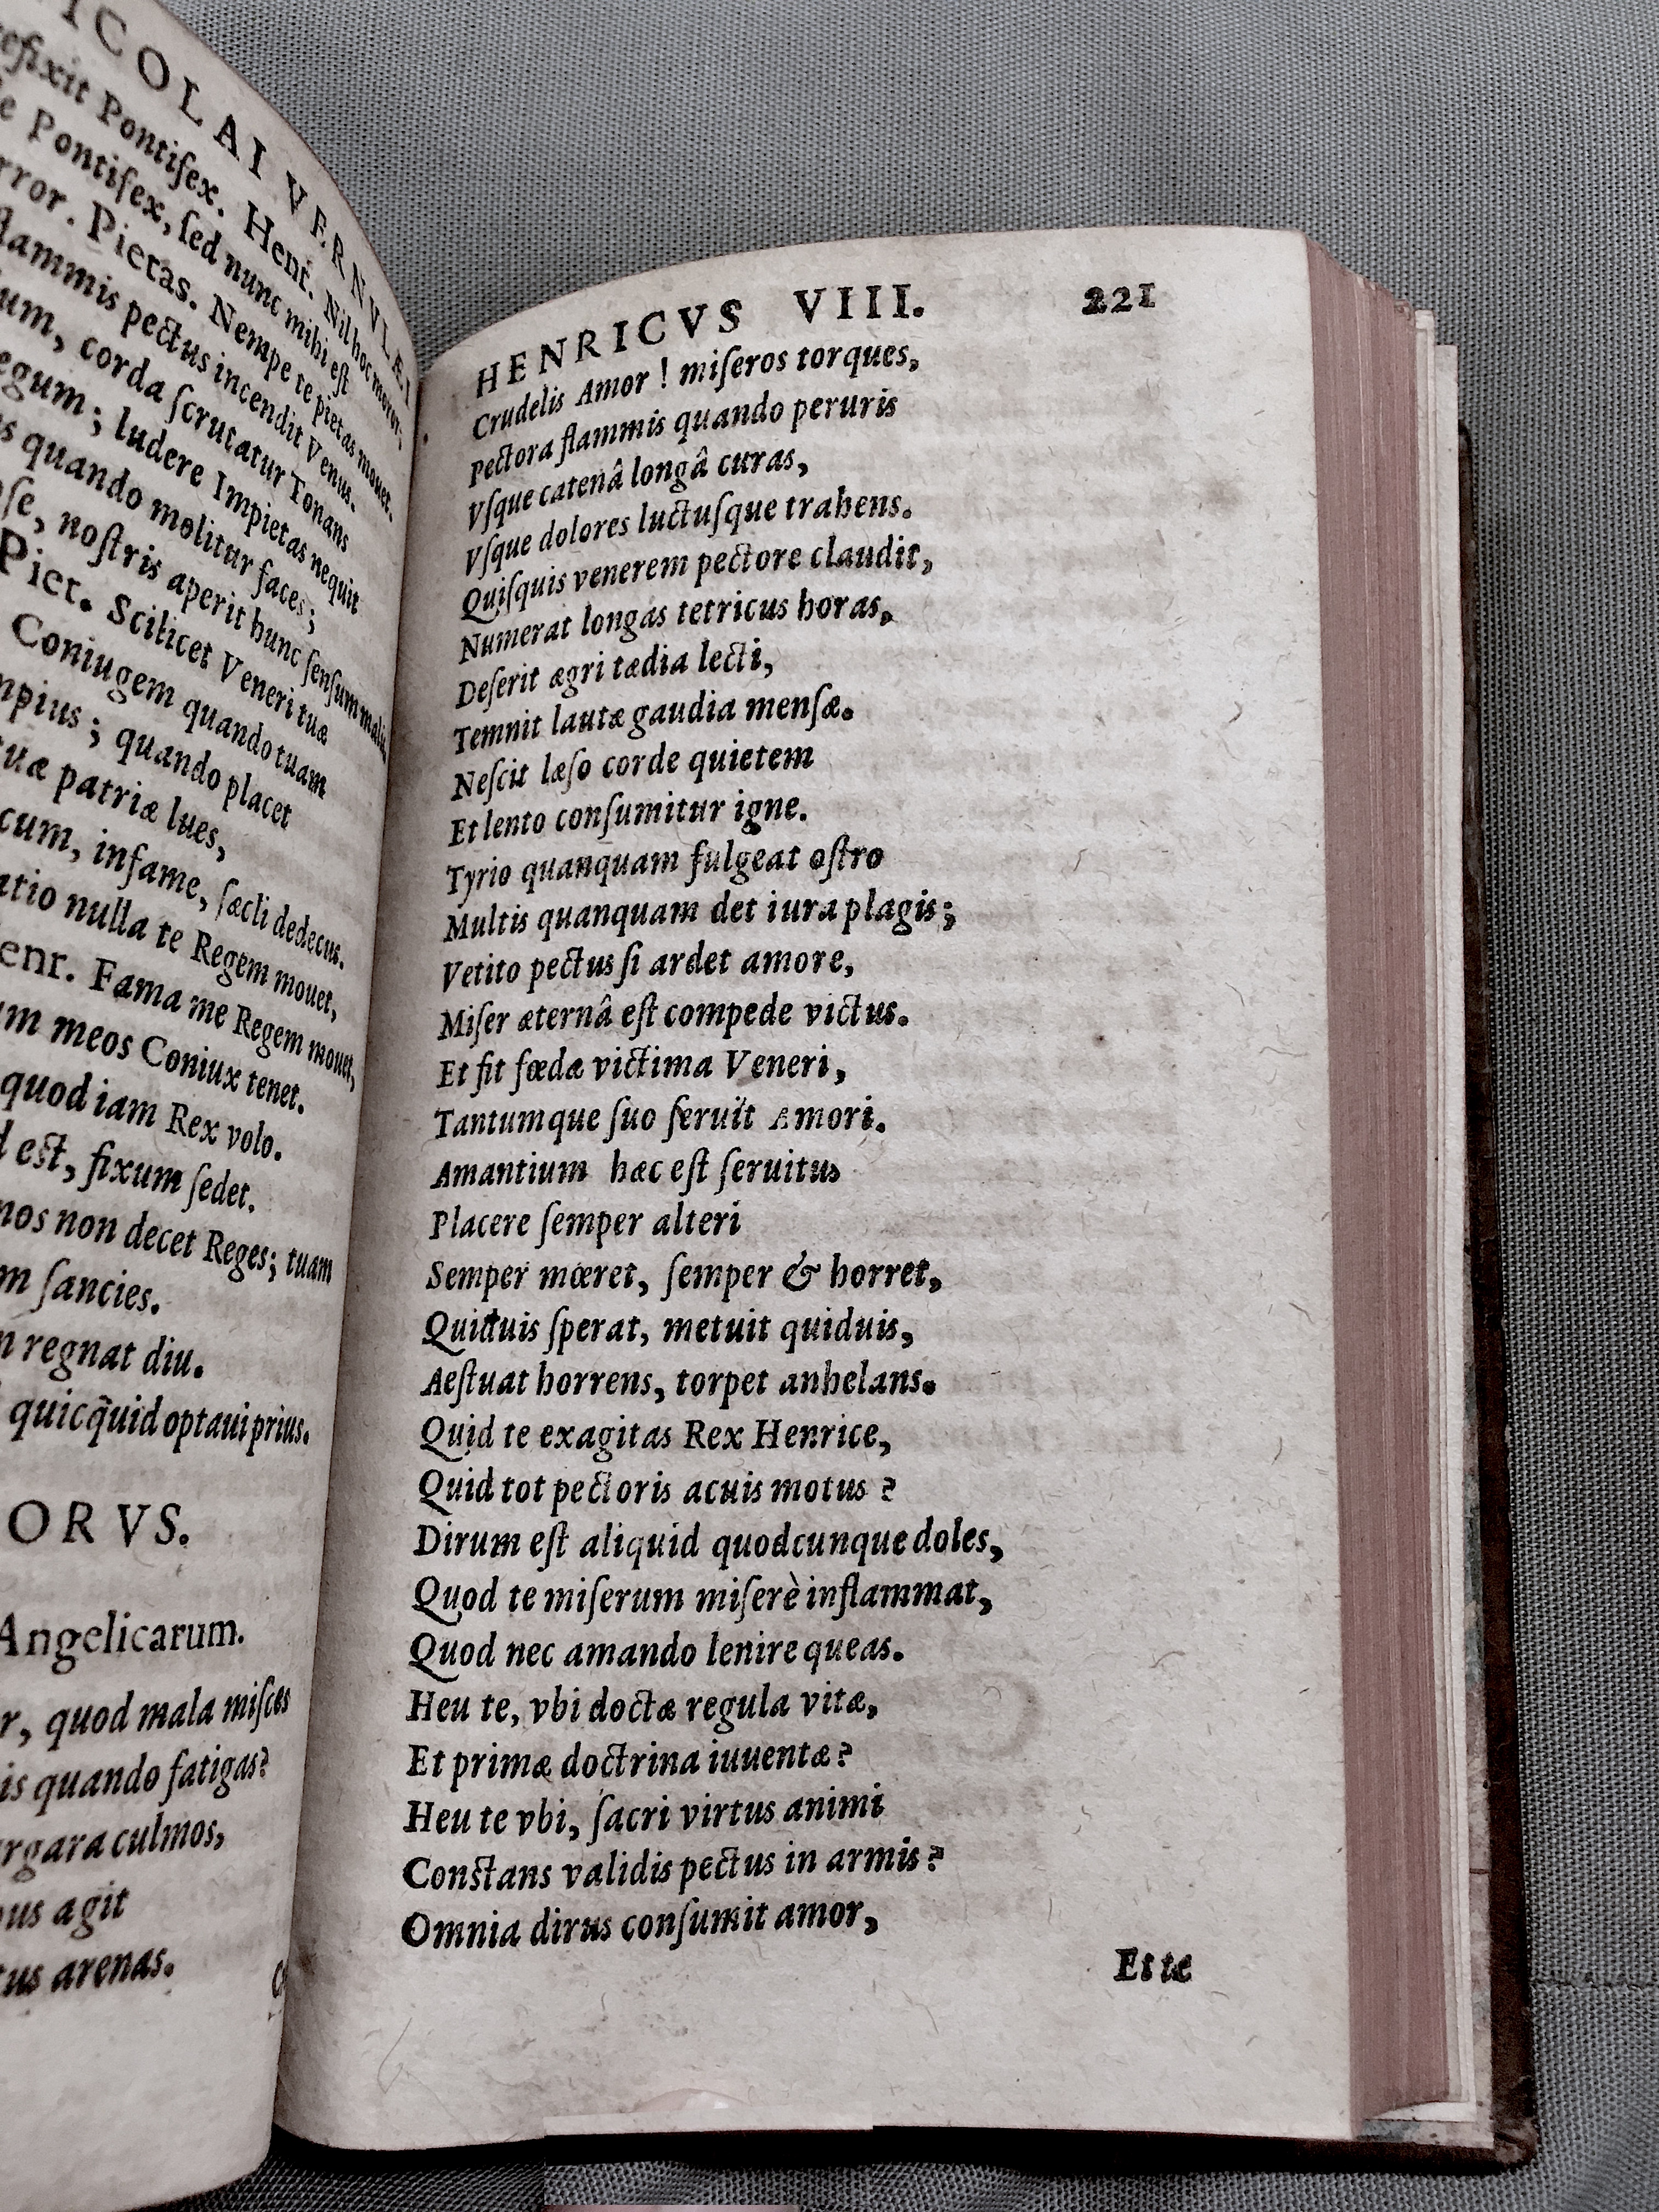 NICOLAI VERNVLÆI
Pontifex. Henr. Nil hoc moror,
Pontifex, sed nunc mihi est
Pietas. Nempe te pietas mouet.
flammis pectus incendit Venus.
corda scrutatur Tonans
ludere Impietas nequit
quando molitur faces;
nostris aperit hunc sensum malis
Piet. Scilicet Veneri tuæ
Coniugem quando tuam
quando placet
tuæ patriæ lues,
infame, sæcli dedecus.
nulla te Regem mouet,
Henr. Fama me Regem mouet,
meos Coniux tenet.
quod iam Rex volo.
est, fixum sedet.
non decet Reges; tuam
sancies.
regnat diu.
quicq̃uid optaui prius.
ORVS.
Angelicarum.
quod mala misces
quando fatigas?
culmos,
agit
arenas.
HENRICVS VIII. 221
Crudelis Amor ! miseros torques,
Pectora flammis quando peruris
Vsque catenâ longâ curas,
Vsque dolores luctusque trahens.
Quisquis venerem pectore claudit,
Numerat longas tetricus horas,
Deserit ægri tædia lecti,
Temnit lautæ gaudia mensæ.
Nescit læso corde quietem
Et lento consumitur igne.
Tyrio quanquam fulgeat ostro
Multis quanquam det iura plagis;
Vetito pectus si ardet amore,
Miser æternâ est compede victus.
Et fit fœdæ victima Veneri,
Tantumque suo seruit Amori.
Amantium hæc est seruitus
Placere semper alteri
Semper mœret, semper & horret,
Quiduis sperat, metuit quiduis,
Aestuat horrens, torpet anhelans.
Quid te exagitas Rex Henrice,
Quid tot pectoris acuis motus ?
Dirum est aliquid quodcunque doles,
Quod te miserum miserè inflammat,
Quod nec amando lenire queas.
Heu te, vbi doctæ regula vitæ,
Et primæ doctrina iuuentæ?
Heu te vbi, sacri virtus animi
Constans validis pectus in armis?
Omnia dirus consumit amor,
Et te